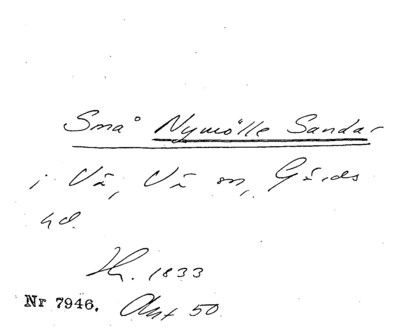 Små Nymölle Sandar
i Vä, Vä sn, Gärds
hd.
Hr. 1833
Nr 7946. Ant 50